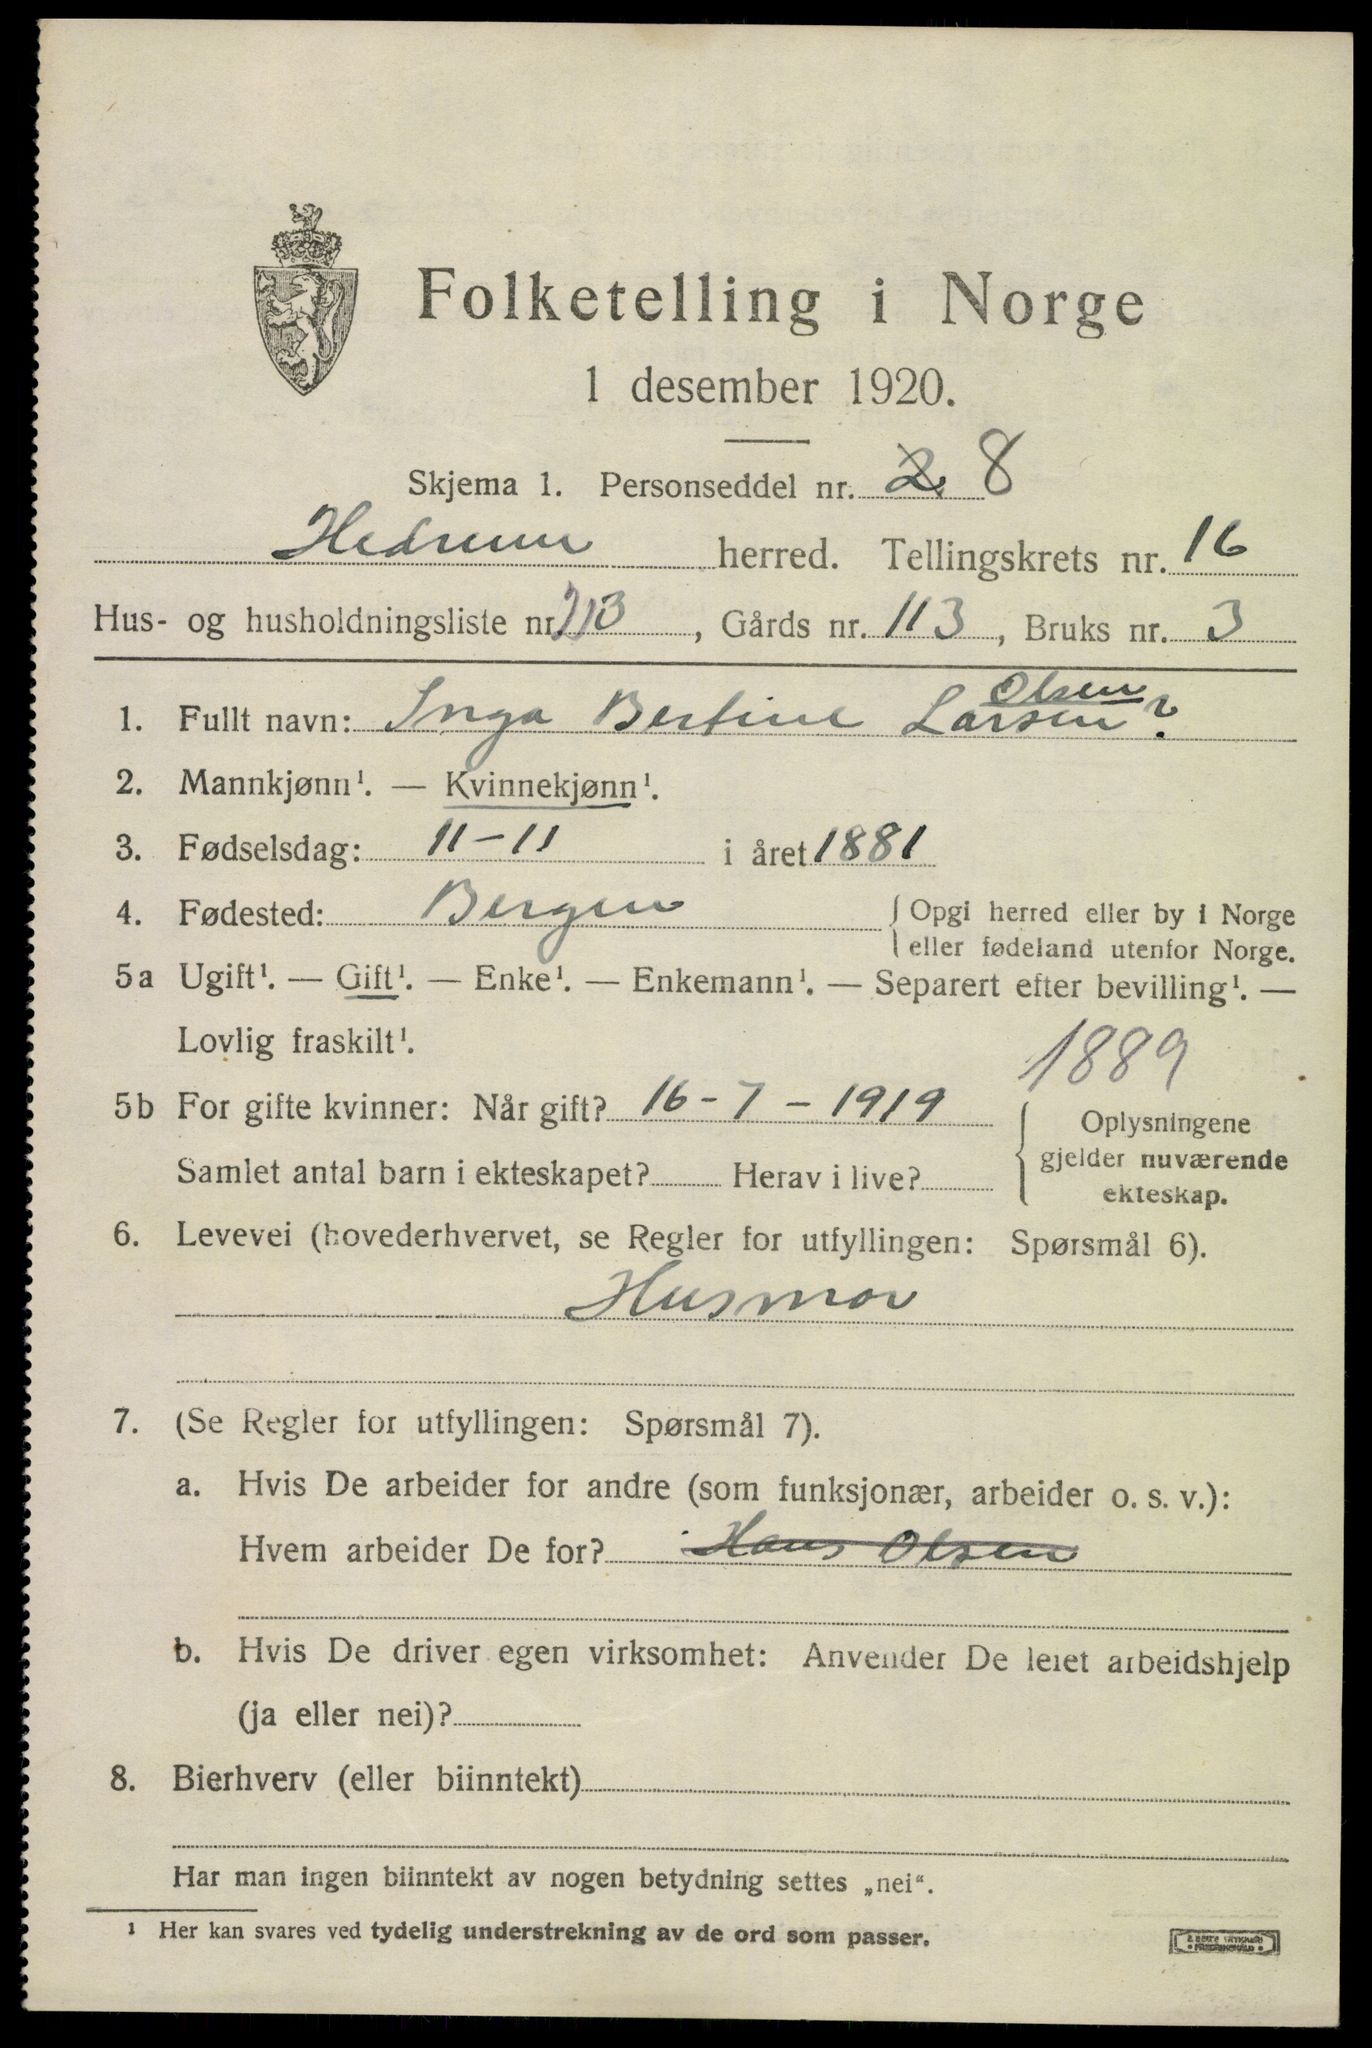 Folketelling i Norge
1 desember 1920.
Skjema 1. Personseddel nr. 2. 8
Hedrum herred. Tellingskrets nr. 16
Hus- og husholdningsliste nr. 113, Gårds nr. 113, Bruks nr. 3
Olsen
1. Fullt navn: Inga Bertine Larsen?
2. Mannkjønn¹. — Kvinnekjønn¹.
3. Fødselsdag: 11-11 i året 1881
4. Fødested: Bergen { Opgi herred eller by i Norge
eller fødeland utenfor Norge.
5a Ugift¹. — Gift¹. — Enke¹. — Enkemann¹. — Separert efter bevilling¹. —
Lovlig fraskilt¹.
1889
5b For gifte kvinner: Når gift? 16-7-1919 { Oplysningene
gjelder nuværende
Samlet antal barn i ekteskapet? Herav i live?
ekteskap.
6. Levevei (hovederhvervet, se Regler for utfyllingen: Spørsmål 6).
Husmor
7. (Se Regler for utfyllingen: Spørsmål 7).
a. Hvis De arbeider for andre (som funksjonær, arbeider o. s. v.):
Hvem arbeider De for? Hans Olsen
b. Hvis De driver egen virksomhet: Anvender De leiet arbeidshjelp
(ja eller nei)?
8. Bierhverv (eller biinntekt)
Har man ingen biinntekt av nogen betydning settes „nei“.
¹ Her kan svares ved tydelig understrekning av de ord som passer.